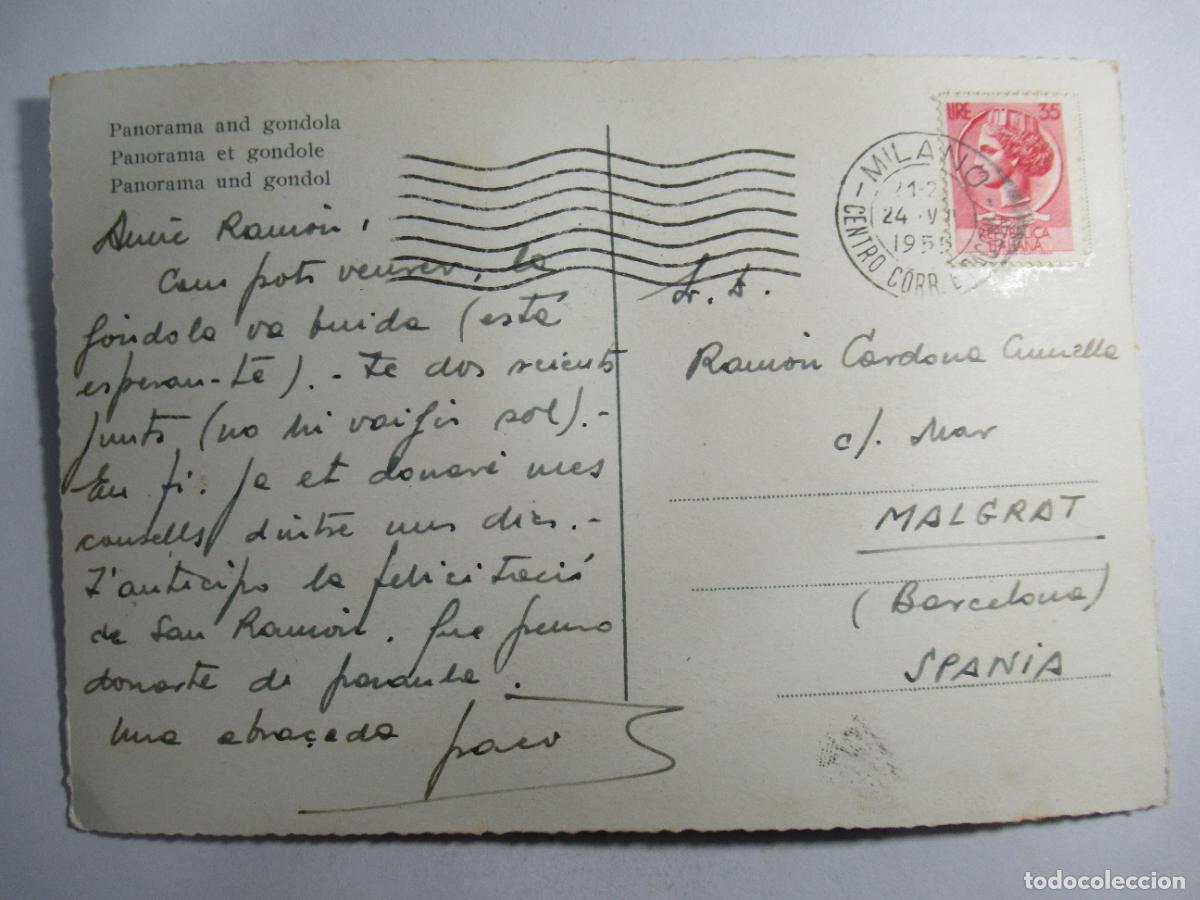 Panorama and gondola
Panorama et gondole
Panorama und gondol
Amic Ramón,
Com pots veurer, la
góndola va buida (està
esperan-te). - Te dos seients
junts (no hi vaigis sol). -
En fi. Ja et donaré mes
consells dintre uns dies. -
T'anticipo la felicitació
de San Ramón. Que penso
donarte de paraula.
Una abraçada Paco
MILANO
24 V
1955
CENTRO CORR.
LIRE 35
REPUBBLICA
ITALIANA
Sr. D.
Ramón Cardona
c/. Mar
MALGRAT
(Barcelona)
SPANIA
todocoleccion